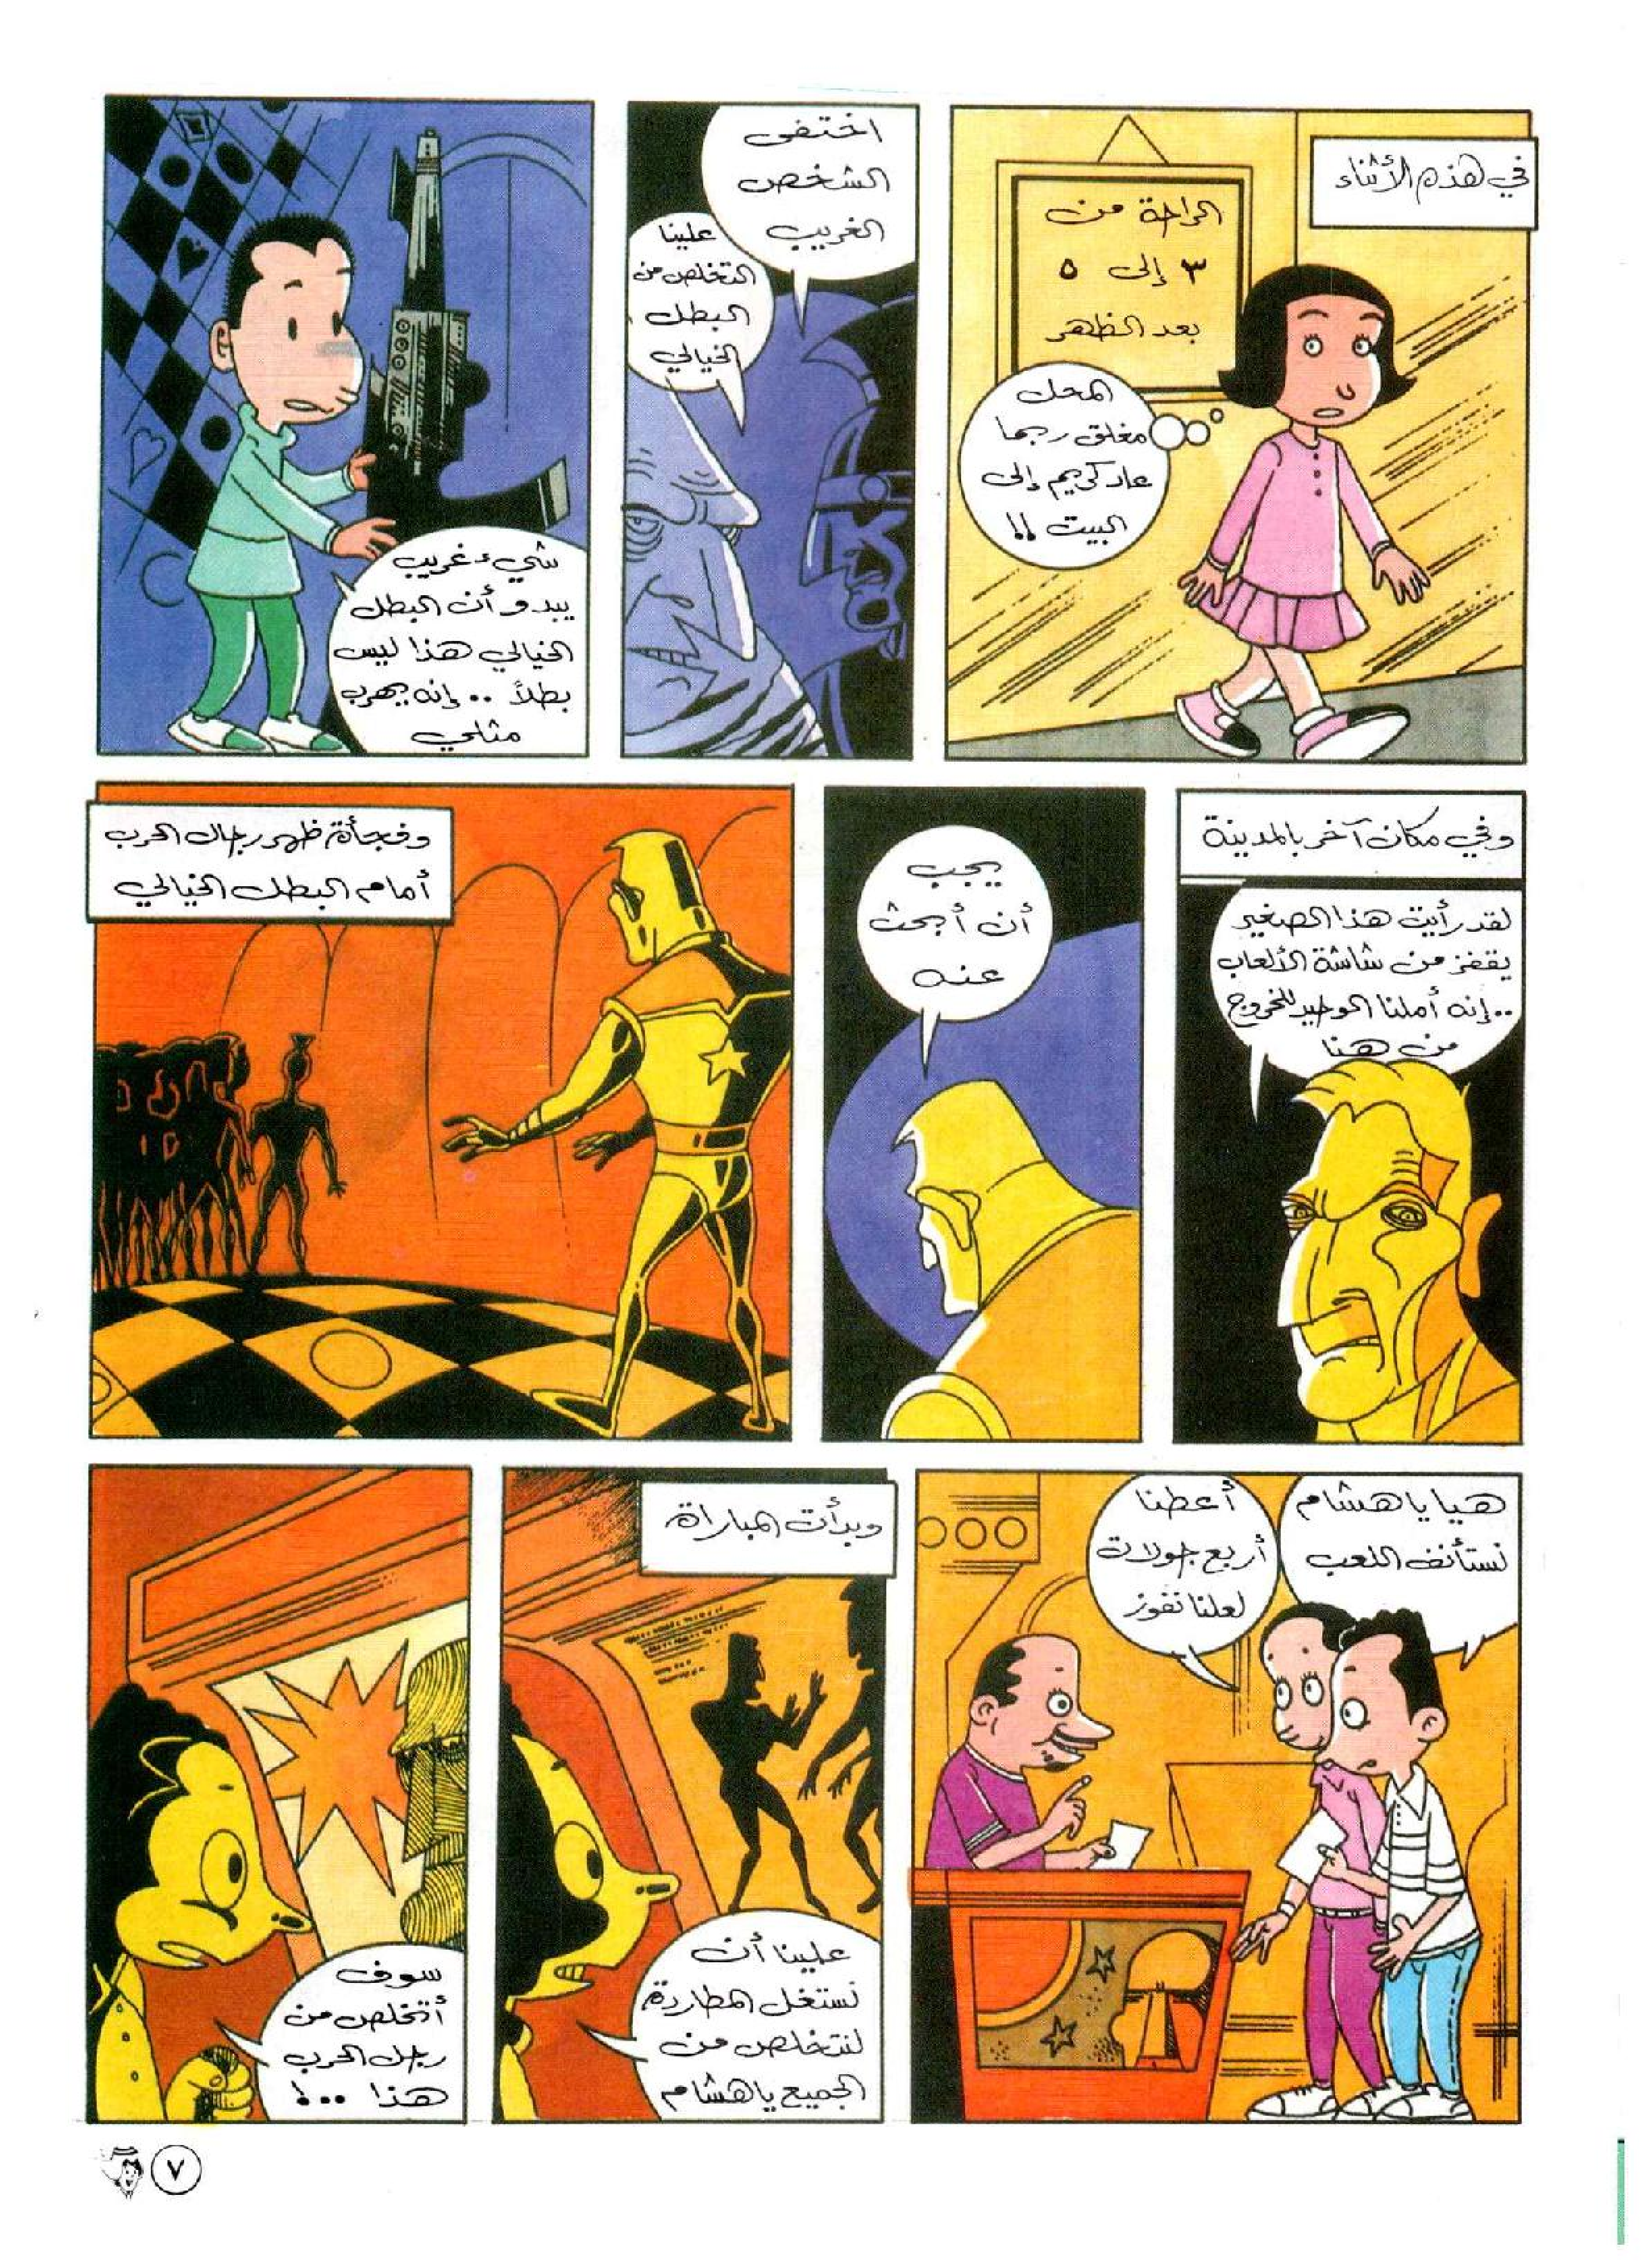 في هذه الأثناء
الراحة من
٣ إلى ٥
بعد الظهر
المحل
مغلق ربما
عاد كريم إلى
البيت !!
اختفى
الشخص
الغريب
علينا
التخلص من
البطل
الخيالي
شيء غريب
يبدو أن البطل
الخيالي هذا ليس
بطلاً .. إنه يهرب
مثلي
وفي مكان آخر بالمدينة
لقد رأيت هذا الصغير
يقفز من شاشة الألعاب
.. إنه أملنا الوحيد للخروج
من هنا
يجب
أن أبحث
عنه
وفجأة ظهر رجال الحرب
أمام البطل الخيالي
هيا يا هشام
نستأنف اللعب
أعطنا
أربع جولات
لعلنا نفوز
وبدأت المباراة
علينا أن
نستغل المطاردة
لنتخلص من
الجميع يا هشام
سوف
أتخلص من
رجل الحرب
هذا ..!
٧